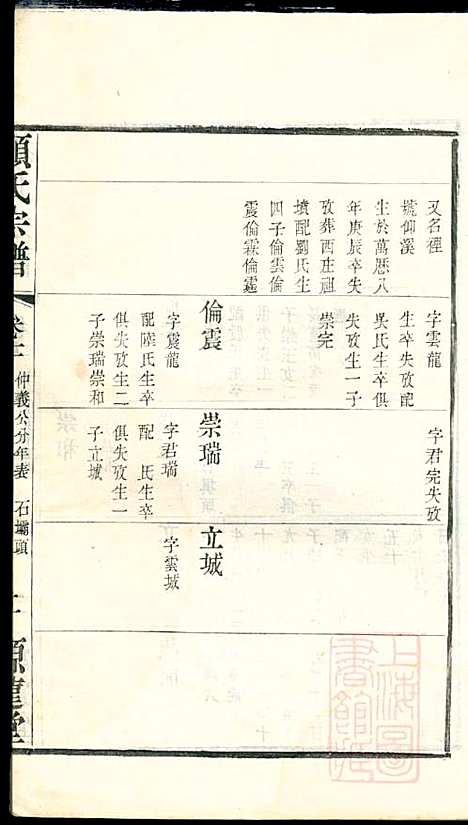 又名徑
號仰溪
生於萬厯八
年庚辰卒失
攷葬西庄祖
墳配劉氏生
四子倫雲倫
震倫霖倫霆
字雲龍
生卒失攷配
吳氏生卒俱
失攷生一子
崇完
倫震
字震龍
配陸氏生卒
俱失攷生二
子崇瑞崇和
字君完失攷
崇瑞
字君瑞
配 氏生卒
俱失攷生一
子立城
立城
字雲城
氏宗譜
仲義公分年表 石壩頭
上海圖
書館藏